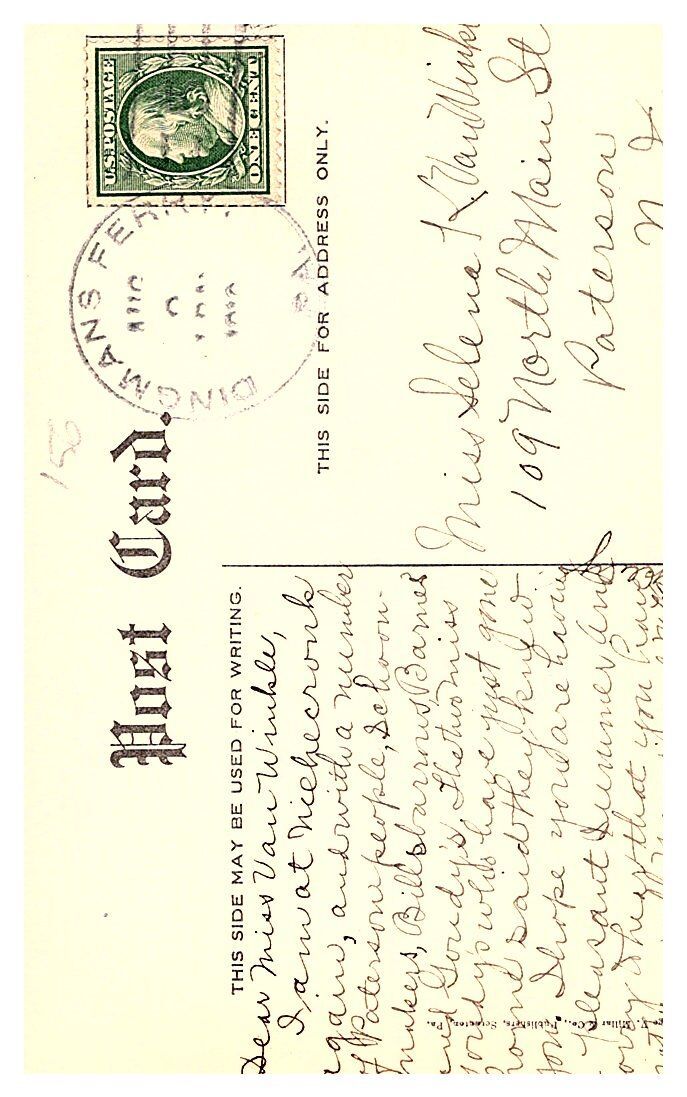 Post Card.
THIS SIDE MAY BE USED FOR WRITING.
THIS SIDE FOR ADDRESS ONLY.
U.S. POSTAGE
ONE CENT
DINGMANS FERRY, PA.
AUG
156
Dear Miss Van Winkle,
I am at Nichecronk
again, and with a number
of Paterson people, Schoon-
makers, Billsbarrows, Barnes
and Goudy's. The two miss
Goudy's who have just gone
home said they knew
you. I hope you are having
a pleasant summer and
that you have
Miss Selena K. Van Winkle
109 North Main St
Paterson
N J
V. Millar & Co., Publishers, Scranton, Pa.